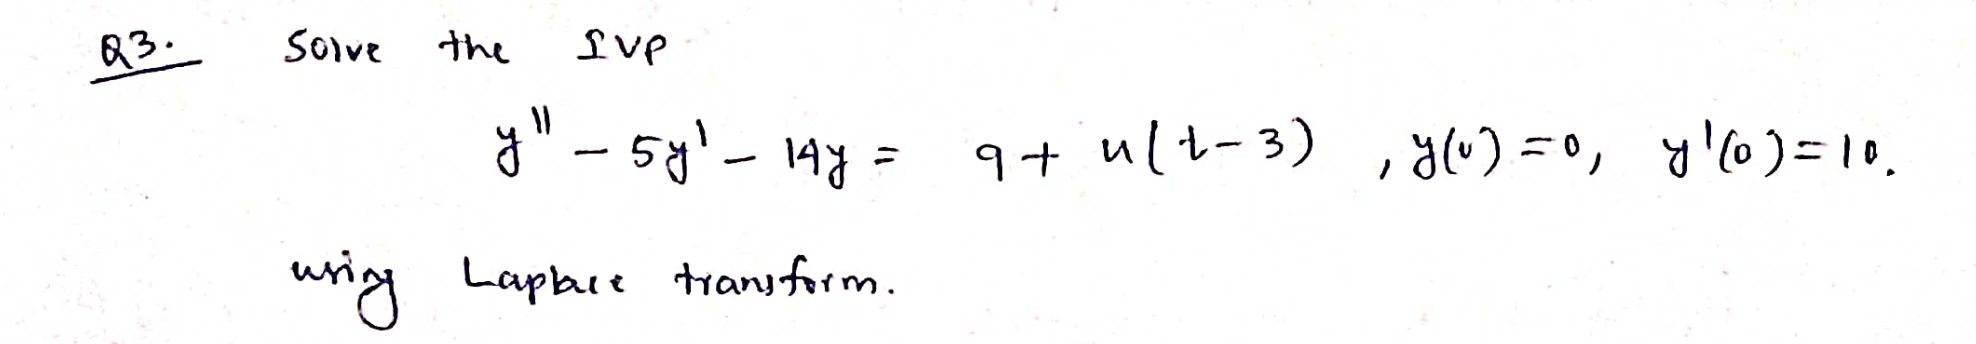 Q3. Solve the IVP
y'' - 5y' - 14y = 9 + u(t-3) , y(0) = 0, y'(0) = 10.
using Laplace transform.